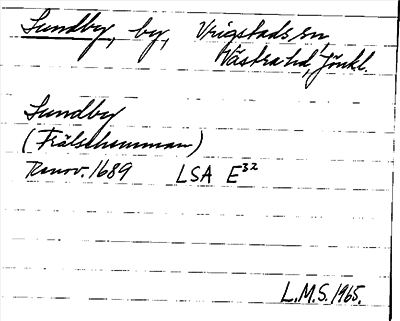 Sundby, by, Vrigstads sn,
Västra hd, Jönkl.
Sundby
(Frälsehemman)
Renov. 1689 LSA E³²
L.M.S. 1965.